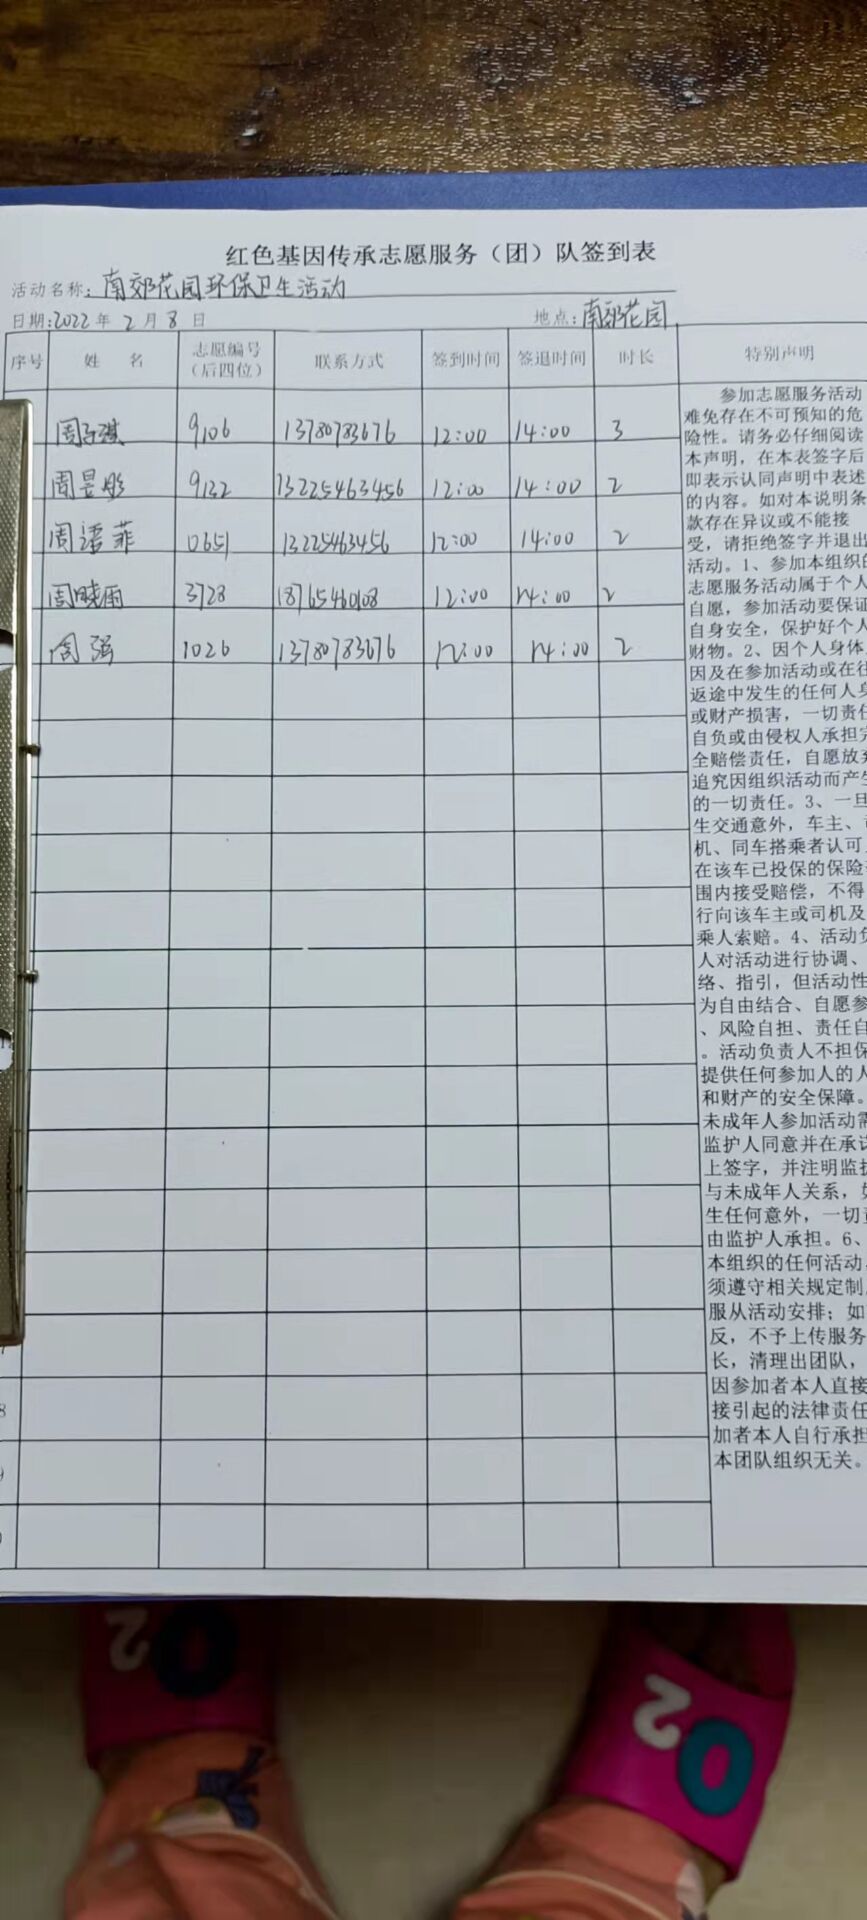 红色基因传承志愿服务（团）队签到表
活动名称：南郊花园环保卫生活动
日期：2022年2月8日 地点：南郊花园
序号 姓名 志愿编号（后四位） 联系方式 签到时间 签退时间 时长 特别声明
周子琪 9106 13780783676 12:00 14:00 3
周昱彤 9132 13225463456 12:00 14:00 2
周语菲 0651 13225463456 12:00 14:00 2
周晓雨 3728 18765460108 12:00 14:00 2
周强 1026 13780783676 12:00 14:00 2
参加志愿服务活动
难免存在不可预知的危
险性。请务必仔细阅读
本声明，在本表签字后
即表示认同声明中表述
的内容。如对本说明条
款存在异议或不能接
受，请拒绝签字并退出
活动。1、参加本组织的
志愿服务活动属于个人
自愿，参加活动要保证
自身安全，保护好个人
财物。2、因个人身体
因及在参加活动或在往
返途中发生的任何人身
或财产损害，一切责任
自负或由侵权人承担完
全赔偿责任，自愿放弃
追究因组织活动而产生
的一切责任。3、一旦
生交通意外，车主、
机、同车搭乘者认可
在该车已投保的保险
围内接受赔偿，不得
行向该车主或司机及
乘人索赔。4、活动负
人对活动进行协调、
络、指引，但活动性
为自由结合、自愿参
、风险自担、责任自
。活动负责人不担保
提供任何参加人的人
和财产的安全保障。
未成年人参加活动需
监护人同意并在承诺
上签字，并注明监护
与未成年人关系，如
生任何意外，一切责
由监护人承担。6、
本组织的任何活动，
须遵守相关规定制
服从活动安排；如
反，不予上传服务
长，清理出团队，
因参加者本人直接
接引起的法律责任
加者本人自行承担
本团队组织无关。
8
9
O2
O2